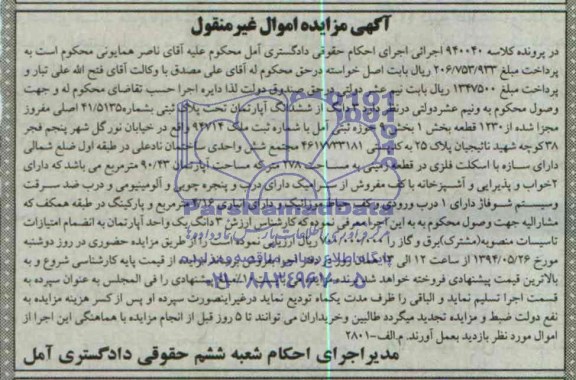 آگهی مزایده اموال غیر منقول
در پرونده کلاسه ۹۴۰۰۴۰ اجرائی اجرای احکام حقوقی دادگستری آمل محکوم علیه آقای ناصر همایونی محکوم است به
پرداخت مبلغ ۲۰۶/۷۵۳/۹۳۳ ریال بابت اصل خواسته درحق محکوم له آقای علی مصدق با وکالت آقای فتح الله علی تبار و
پرداخت مبلغ ۱۳۴۷۵۰۰ ریال بابت نیم عشر دولتی درحق صندوق دولت لذا دایره اجرا حسب تقاضای محکوم له و جهت
وصول محکوم به ونیم عشردولتی درنظر دارد ۳ دانگ از ششدانگ آپارتمان تحت پلاک ثبتی بشماره ۴۱/۵۱۳۵ اصلی مفروز
مجزا شده از ۱۲۳۰ قطعه بخش ۱ بخش حوزه ثبتی آمل با شماره ثبت ملک ۹۴۷۱۴ واقع در خیابان نور گل شهر پنجم فجر
۳۸ کوچه شهید نائیجیان پلاک ۲۵ به کدپستی ۴۶۱۷۷۳۳۱۸۱ مجتمع شش واحدی ساختمان نادعلی در طبقه اول ضلع شمالی
دارای سازه با اسکلت فلزی در قطعه زمینی به مساحت ۲۷۸ مترکه مساحت آپارتمان ۹۰/۴۳ مترمربع می باشد که دارای
۲خواب و پذیرایی و آشپزخانه با کف مفروش از سرامیک دارای درب و پنجره چوبی و آلومینیومی و درب ضد سرقت
وسیستم شوفاژ دارای ۱ درب ورودی و کف
مترمربع و پارکینگ در طبقه همکف که
مشارالیه جهت وصول محکوم به به این اجرا معرفی نموده که کارشناس ارزش ۳ دانگ یک واحد آپارتمان به انضمام امتیازات
تاسیسات منصوبه(مشترک)برق و گاز را
ریال ارزیابی نموده است را از طریق مزایده حضوری در روز دوشنبه
مورخ ۱۳۹۴/۰۵/۲۶ از ساعت ۱۲ الی ۱۳
از قیمت پایه کارشناسی شروع و به
بالاترین قیمت پیشنهادی فروخته خواهد شد
پیشنهادی را فی المجلس به عنوان سپرده به
قسمت اجرا تسلیم نماید و الباقی را ظرف مدت یکماه تودیع نماید درغیراینصورت سپرده او پس از کسر هزینه مزایده به
نفع دولت ضبط و مزایده تجدید میگردد طالبین وخریداران می توانند تا ۵ روز قبل از انجام مزایده با هماهنگی این اجرا از
اموال مورد نظر بازدید بعمل آورند. م.الف-۲۸۰۱
مدیر اجرای احکام شعبه ششم حقوقی دادگستری آمل
ParsNamadData
۰۲۱-۸۸۳۴۹۶۷۰-۵